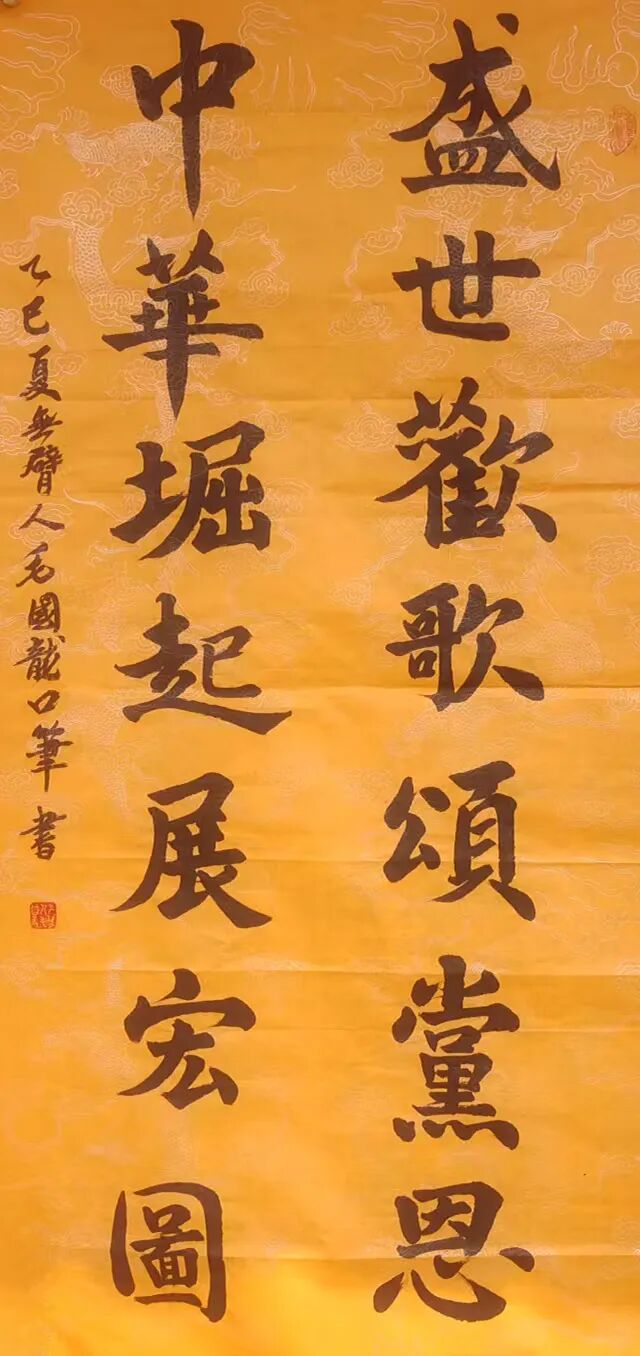 盛世歡歌頌黨恩
中華堀起展宏圖
乙巳夏無臂人毛國龍口筆書